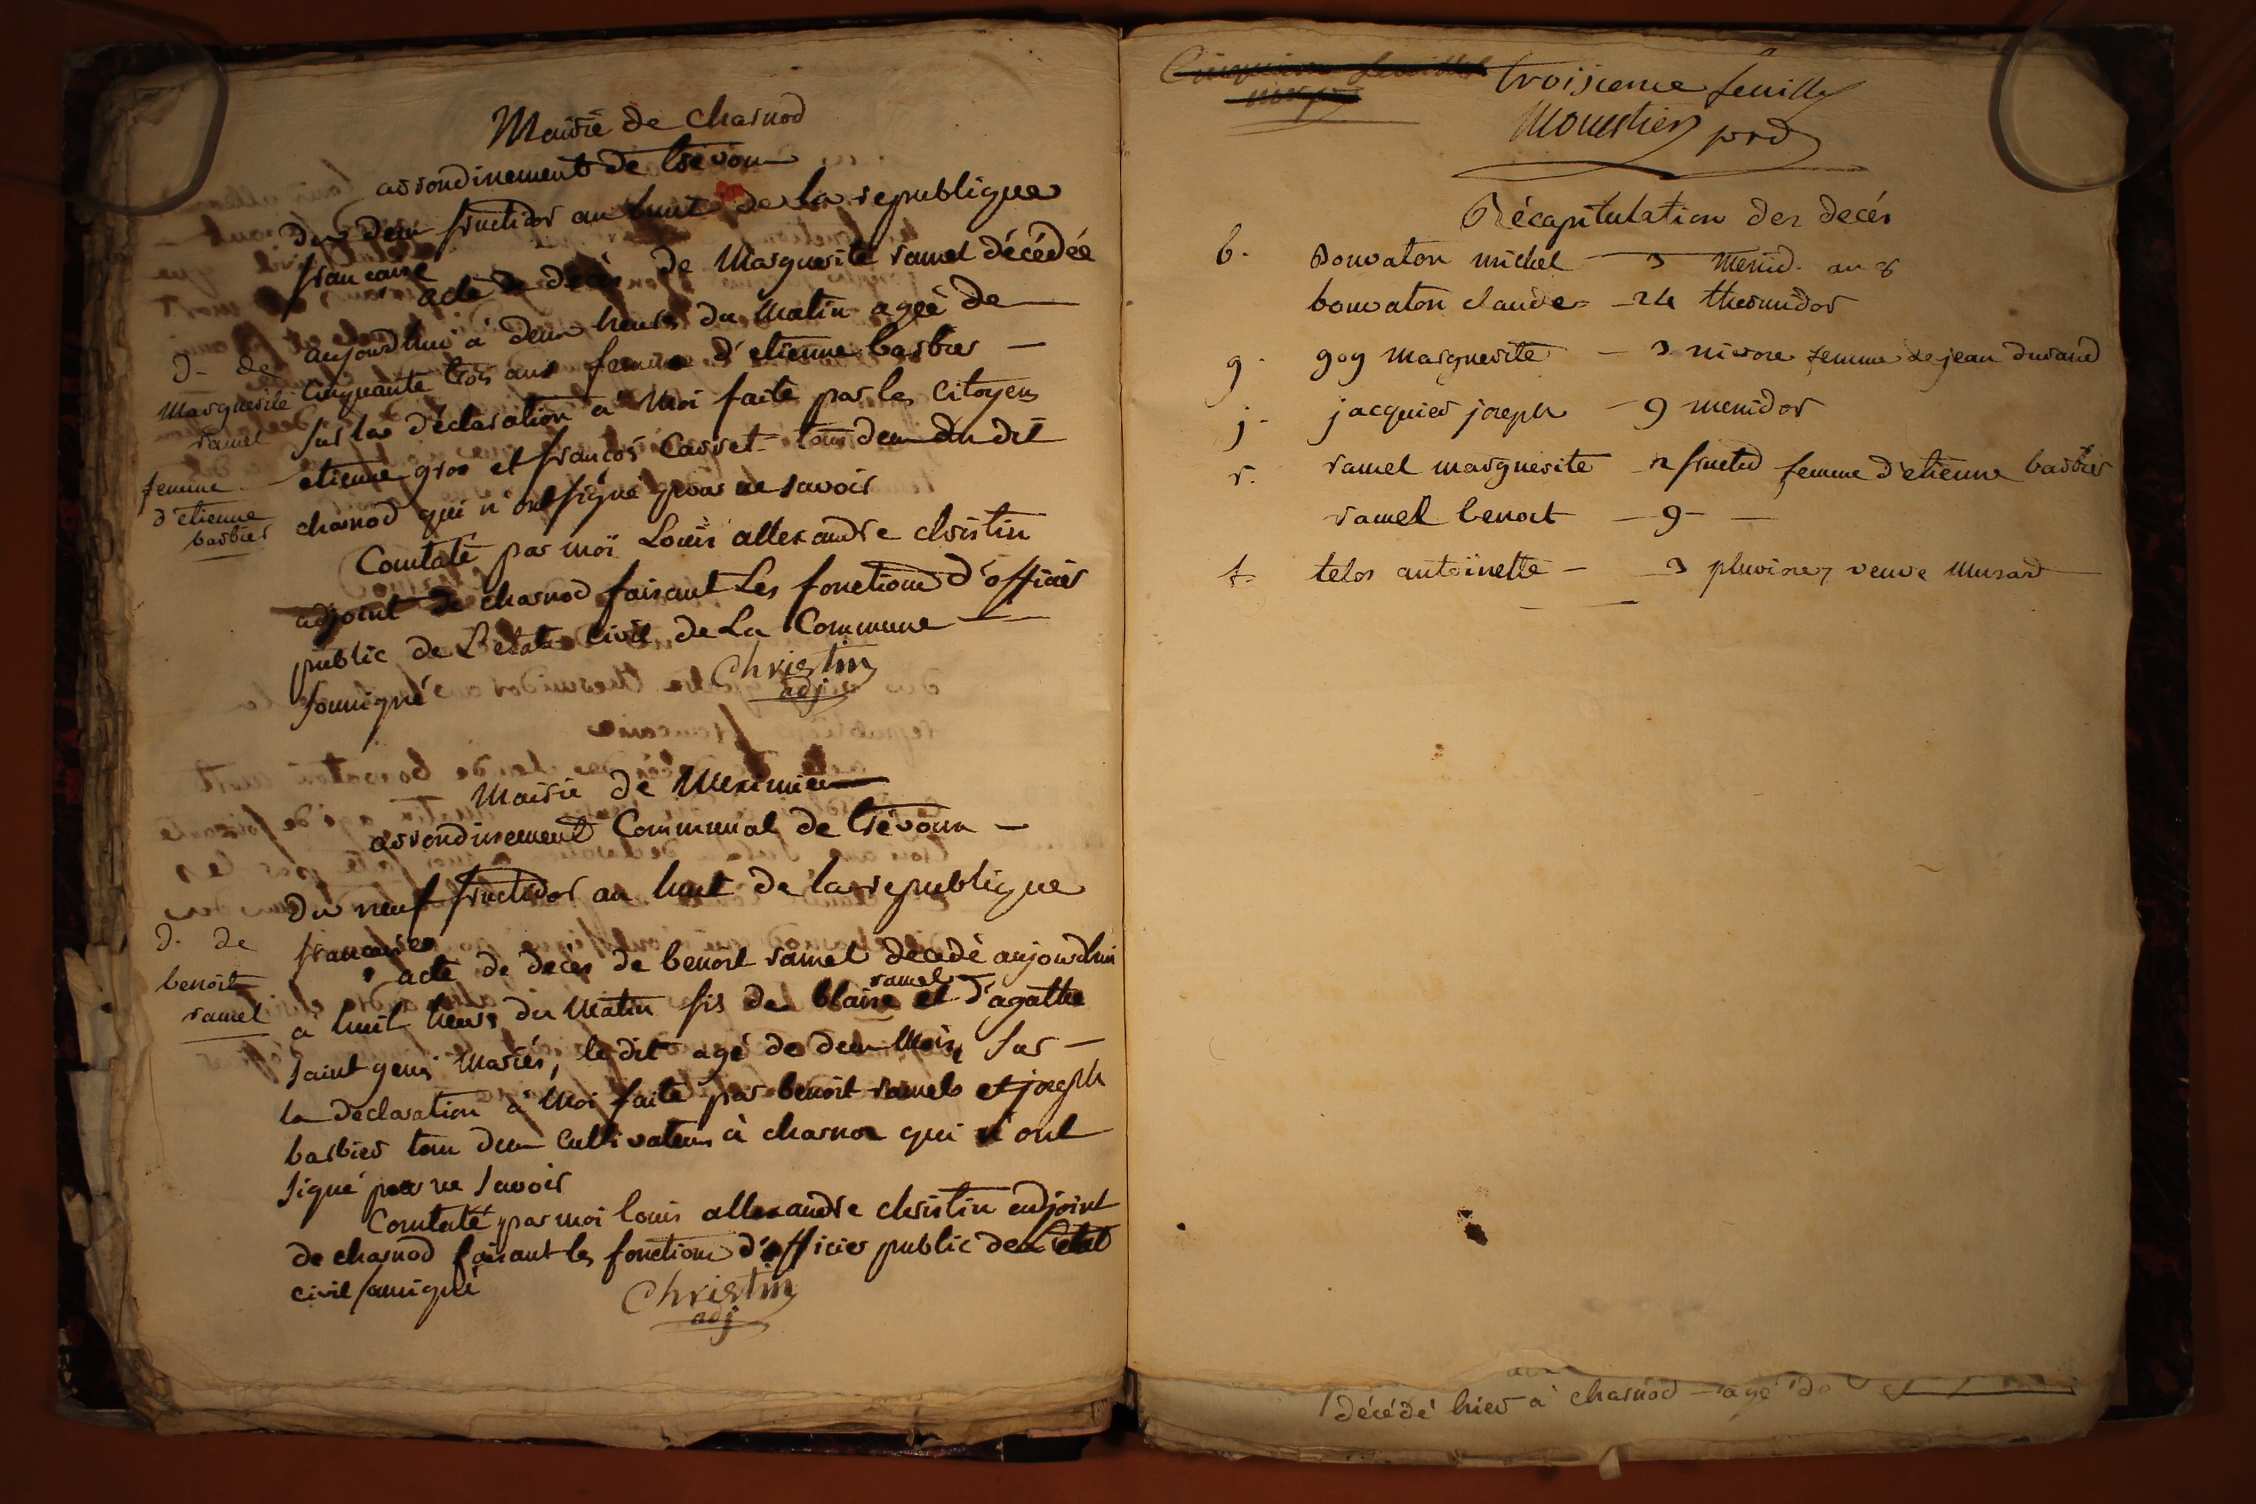 Mairie de charnod
arrondinement de trevoux
du deux fructidor an huit de la republique
francaise
acte de decès de Marguerite ramel décédée
aujourdhui à deux heures du matin ageè de
cinquante trois ans femme d'etienne barbier
sur la déclaration à moi faite par les citoyens
etienne gros et francois carret tous deux du dit
charnod qui n'ont signé pour ne savoir
Constaté par moi Louis allexandre christin
adjoint de charnod faisant Les fonctions d'officier
public de L'etat civil de La Commune
soussigné
Christin
adj
d. de
Marguerite
ramel
femme
d'etienne
barbier
Mairie de Meximieux
arrondissement Communal de trévoux
du neuf fructidor an huit de la republique
francaise
acte de decès de benoit ramel décedé aujourdhui
à huit heures du matin fils de blaise ramel et d'agathe
saint genis mariés, le dit agé de deux mois, sur
la declaration à moi faite par benoit ramel et joseph
barbier tous deux cultivateurs à charnoz qui n'ont
signé pour ne savoir
Constaté par moi louis allexandre christin adjoint
de charnod faisant les fonctions d'officier public de l'etat
civil soussigné
Christin
adj
d. de
benoit
ramel
Cinquieme feuillet
troisieme feuillet
Moustier prd
Récapitulation des decés
b. bouvaton michel — 3 messid. an 8
bouvaton claude — 24 thermidor
g. goy marguerite — 3 nivose femme de jean durand
j. jacquier joseph — 9 messidor
r. ramel marguerite — 2 fructid femme d'etienne barbier
ramel benoit — 9 —
t. telos antoinette — 3 pluviose, veuve Musard
décédé hier à charnod agé de